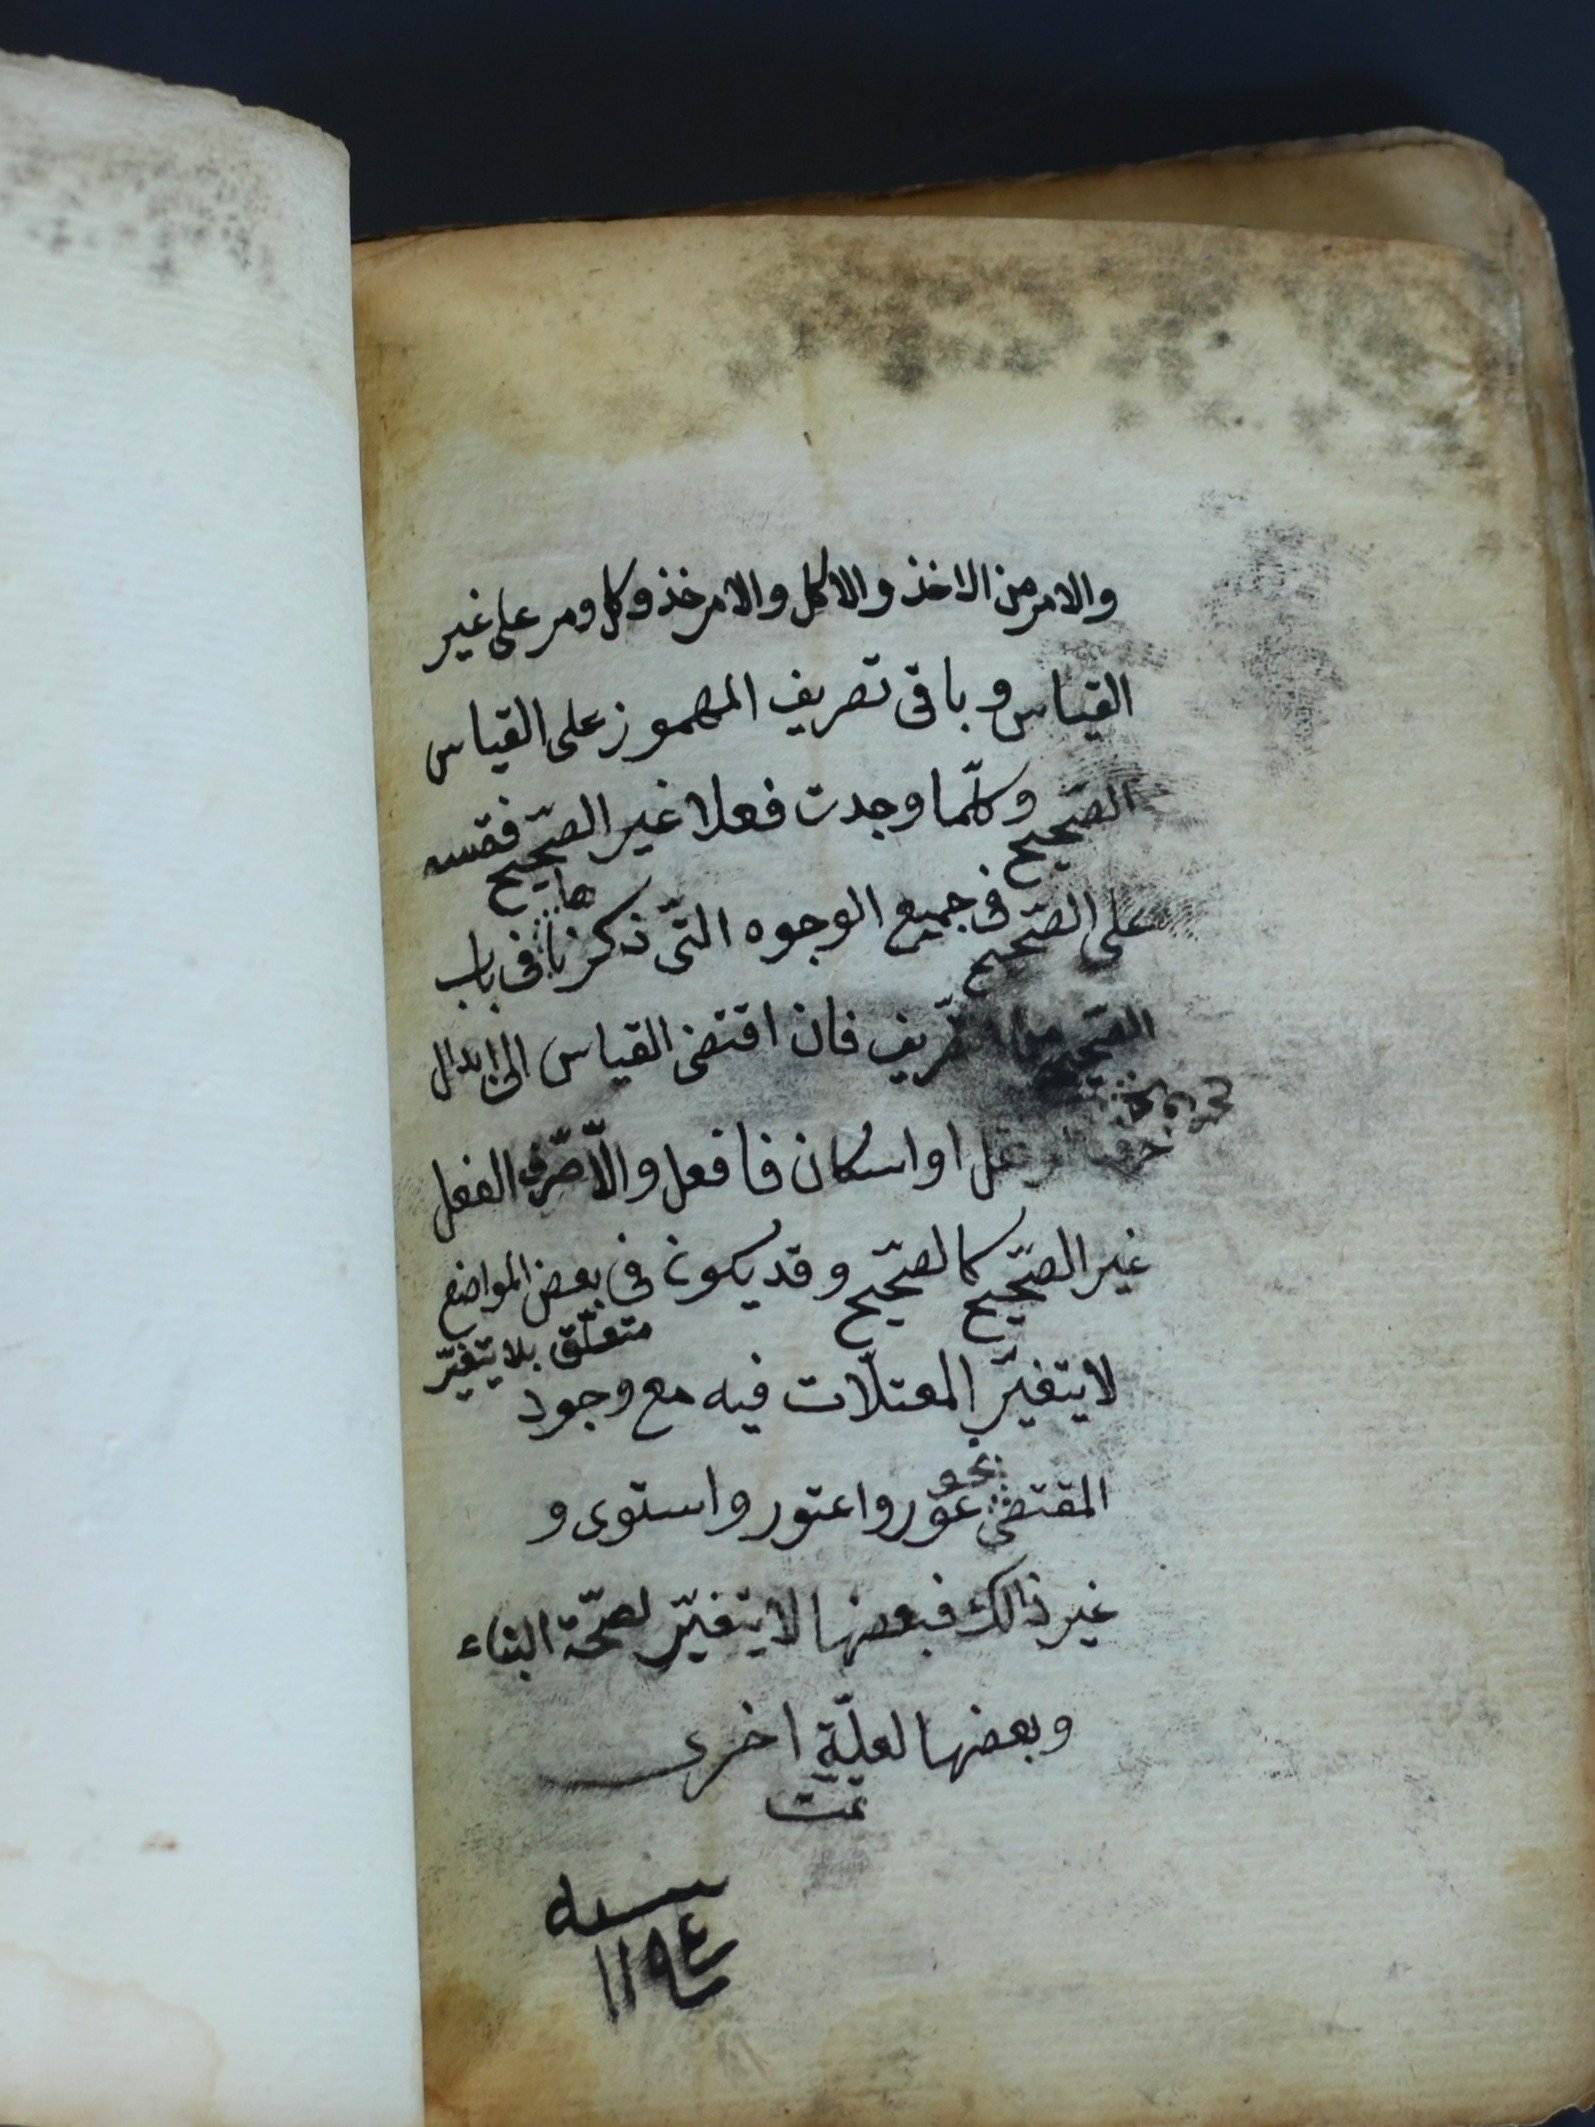 والامر من الاخذ والاكل والامر خذ وكل ومر على غير
القياس وباقى تصريف المهموز على القياس
الصّحيح وكلّما وجدت فعلا غير الصّحيح فقسه
على الصّحيح فى جميع الوجوه التّى ذكرناها فى باب
الصّحيح من فان اقتضى القياس الى ابدال
حرف او نقل او اسكان فافعل والّا صرّف الفعل
غير الصّحيح كالصّحيح وقد يكون فى بعض المواضع
متعلّق بلا يتغيّر
لا يتغيّر المعتلّات فيه مع وجود
نحو
المقتضى عور واعتور واستوى و
غير ذالك فبعضها لا يتغيّر لصّحة البناء
وبعضها لعلّة اخرى
تمّت
سنه
١١٩٤